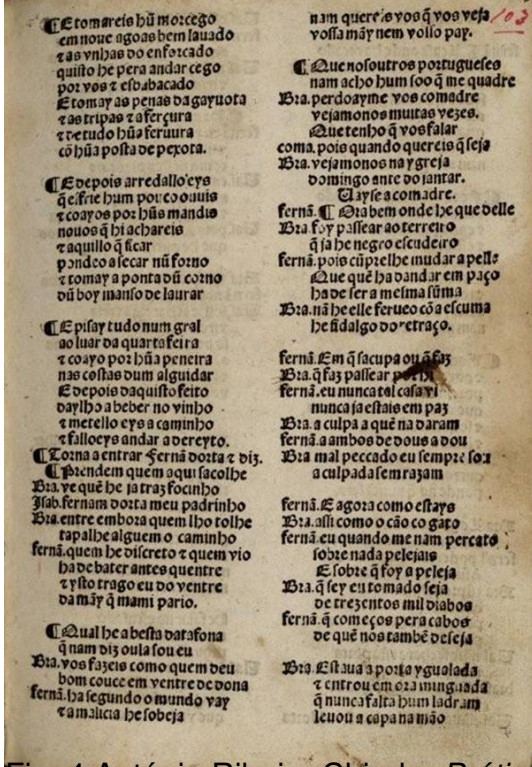 ¶E tomareis hũ morcego
em noue agoas bem lauado
⁊ as vnhas do enforcado
quisto he pera andar cego
por vos ⁊ esbabacado
E tomay as penas da gayuota
⁊ as tripas ⁊ a ferçura
⁊ de tudo hũa feruura
cõ hũa posta de pexota.
¶E depois arredallo eys
q̃ esfrie hum pouco ouuis
⁊ coayos por hũs mandis
nouos q̃ hi achareis
⁊ aquillo q̃ ficar
pondeo a secar nũ forno
⁊ tomay a ponta dũ corno
dũ boy manso de laurar
¶E pisay tudo num gral
ao luar da quarta feira
⁊ coayo por hũa peneira
nas costas dum alguidar
E depois daquisto feito
daylho a beber no vinho
⁊ metello eys a caminho
⁊ falloeys andar a dereyto.
¶Torna a entrar Fernã dorta ⁊ diz.
¶Prendem quem aqui sacolhe
Bra. ve quẽ he ja traz focinho
Isab. fernam dorta meu padrinho
Bra. entre embora quem lho tolhe
tapalhe alguem o caminho
fernã. quem he discreto ⁊ quem vio
ha de bater antes quentre
⁊ ysto trago eu do ventre
da mãy q̃ mami pario.
¶Qual he a besta da tafona
q̃ nam diz oula sou eu
Bra. vos fazeis como quem deu
bom couce em ventre de dona
fernã. ha segundo o mundo vay
⁊ a malicia he sobeja
nam quereis vos q̃ vos veja
vossa mãy nem vosso pay.
103
¶Que nos outros portugueses
nam acho hum soo q̃ me quadre
Bra. perdoayme vos comadre
vejamonos muitas vezes.
Que tenho q̃ vos falar
coma. pois quando quereis q̃ seja
Bra. vejamonos na ygreja
domingo ante do jantar.
Vayse a comadre.
fernã. ¶Ora bem onde he que delle
Bra. foy passear ao terreiro
q̃ ja he negro escudeiro
fernã. pois cũprelhe mudar a pelle
Que quẽ ha dandar em paço
ha de ser a mesma sũma
Bra. nã he elle ferueo cõ a escuma
he fidalgo do retraço.
fernã. Em q̃ sacupa ou q̃ faz
Bra. q̃ faz passear por hi
fernã. eu nunca tal casa vi
nunca ja estais em paz
Bra. a culpa a quẽ na daram
fernã. a ambos de dous a dou
Bra mal peccado eu sempre sou
a culpada sem razam
fernã. E agora como estays
Bra. assi como o cão co gato
fernã. eu quando me nam percato
sobre nada pelejais
E sobre q̃ foy a peleja
Bra. q̃ sey eu tomado seja
de trezentos mil diabos
fernã. q̃ começos pera cabos
de quẽ nos tambẽ deseja
Bra. Estaua a porta ygualada
⁊ entrou em ora minguada
q̃ nunca falta hum ladram
leuou a capa na mão